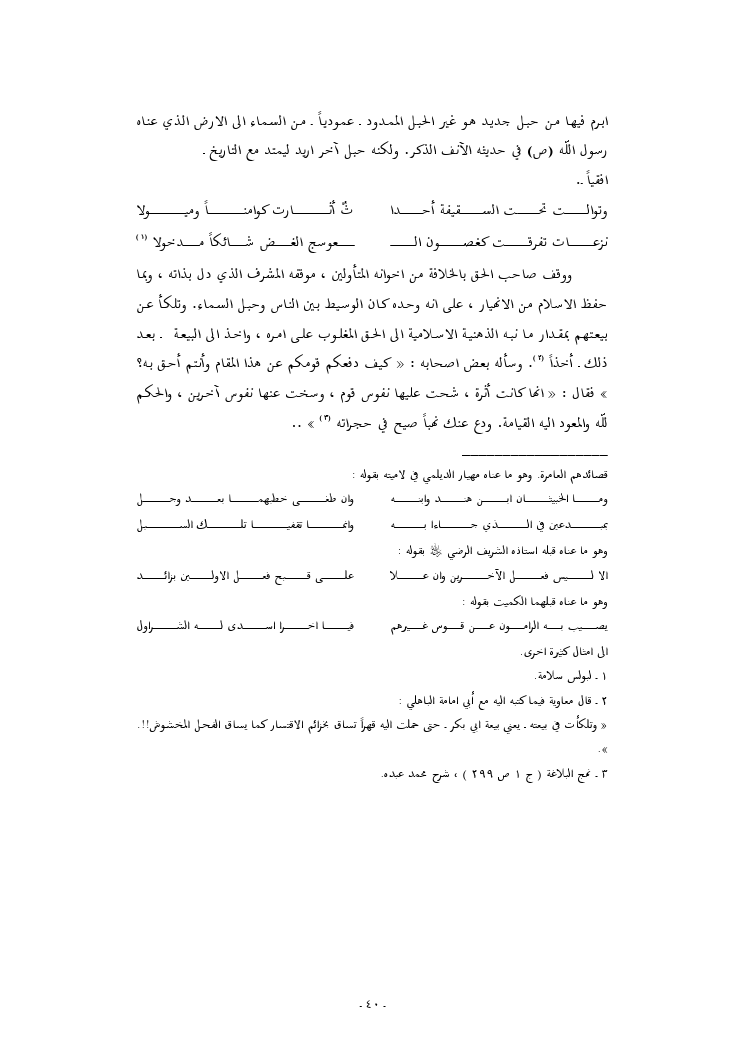 ابرم فيها من حبل جديد هو غير الحبل الممدود ـ عمودياً ـ من السماء الى الارض الذي عناه
رسول اللّه (ص) في حديثه الآنف الذكر. ولكنه حبل آخر اريد ليمتد مع التاريخ ـ
افقياً ـ.
وتوالت تحت السقيفة أحدا ثٌ أثارت كوامناً وميولا
نزعات تفرقت كغصون الـ ـعوسج الغض شائكاً مدخولا (١)
ووقف صاحب الحق بالخلافة من اخوانه المتأولين ، موقفه المشرف الذي دل بذاته ، وبما
حفظ الاسلام من الانهيار ، على انه وحده كان الوسيط بين الناس وحبل السماء. وتلكأ عن
بيعتهم بمقدار ما نبه الذهنية الاسلامية الى الحق المغلوب على امره ، واخذ الى البيعة ـ بعد
ذلك ـ أخذاً (٢). وسأله بعض اصحابه : « كيف دفعكم قومكم عن هذا المقام وأنتم أحق به؟
» فقال : « انها كانت أثرة ، شحت عليها نفوس قوم ، وسخت عنها نفوس آخرين ، والحكم
للّه والمعود اليه القيامة. ودع عنك نهباً صيح في حجراته (٣) » ..
قصائدهم العامرة. وهو ما عناه مهيار الديلمي في لاميته بقوله :
وما الخبيثان ابن هند وابنه وان طغى خطبهما بعد وجل
بمبدعين في الذي جاءا به وانما تقفيا تلك السبل
وهو ما عناه قبله استاذه الشريف الرضي بقوله :
الا ليس فعل الآخرين وان علا على قبح فعل الاولين بزائد
وهو ما عناه قبلهما الكميت بقوله :
يصيب به الرامون عن قوس غيرهم فيا اخرا اسدى له الشر اول
الى امثال كثيرة اخرى.
١ ـ لبولس سلامة.
٢ ـ قال معاوية فيما كتبه اليه مع أبي امامة الباهلي :
« وتلكأت في بيعته ـ يعني بيعة ابي بكر ـ حتى حملت اليه قهراً تساق بخزائم الاقتسار كما يساق الفحل المخشوش!!.
».
٣ ـ نهج البلاغة ( ج ١ ص ٢٩٩ ) ، شرح محمد عبده.
ـ ٤٠ ـ